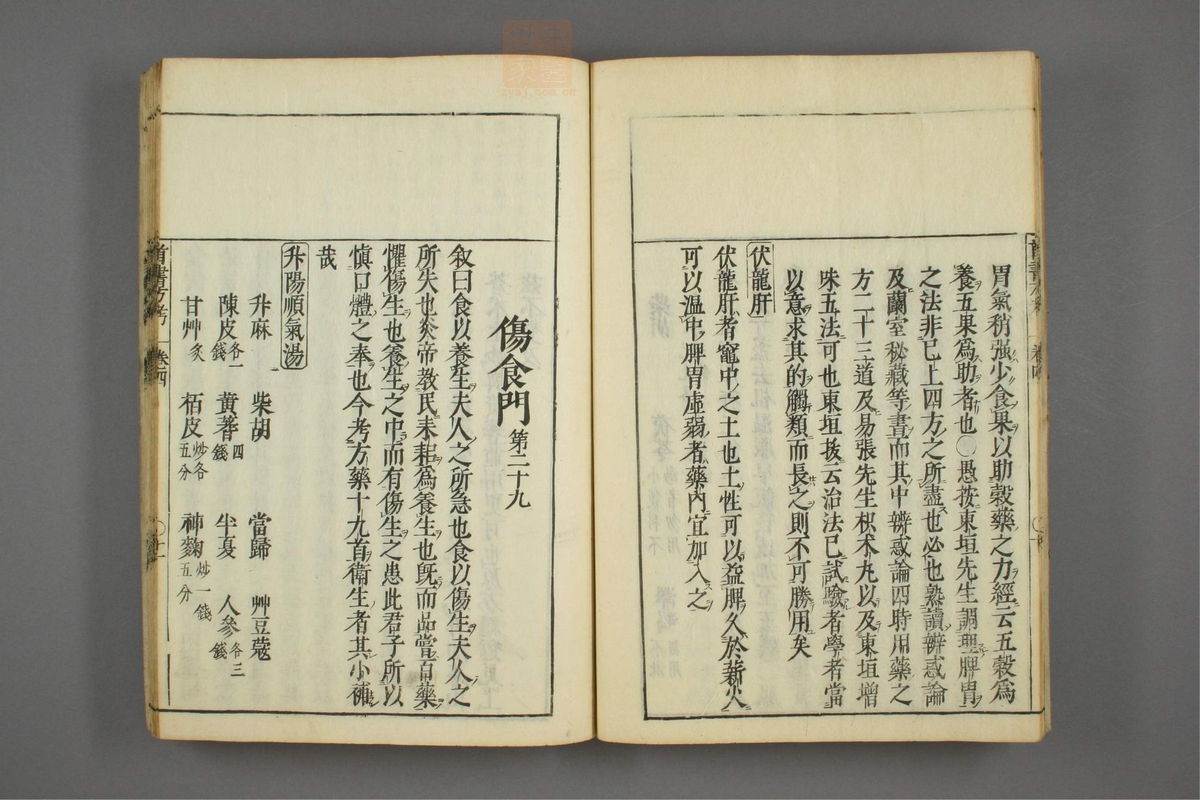 胃氣稍强少食果以助穀藥之力經云五穀爲
養五果爲助者也○愚按東垣先生調理脾胃
之法非已上四方之所盡也必也熟讀辨惑論
及蘭室秘藏等書而其中辨惑論四時用藥之
方二十三道及易張先生枳朮丸以及東垣增
味五法可也東垣按云治法已試驗者學者當
以意求其的觸類而長之則不可勝用矣
伏龍肝
伏龍肝者竈中之土也土性可以益脾久於薪火
可以温中脾胃虚弱者藥内宜加入之
傷食門 第二十九
叙曰食以養生夫人之所急也食以傷生夫人之
所失也炎帝教民耒耜爲養生也旣而品嘗百藥
懼傷生也養生之中而有傷生之患此君子所以
愼口體之奉也今考方藥十九首衛生者其小補
哉
升陽順氣湯
升麻 柴胡 當歸 艸豆蔻
陳皮各一錢 黃蓍四錢 半夏 人參各三錢
甘艸炙 栢皮炒各五分 神麴炒一錢五分
首書方考 卷四